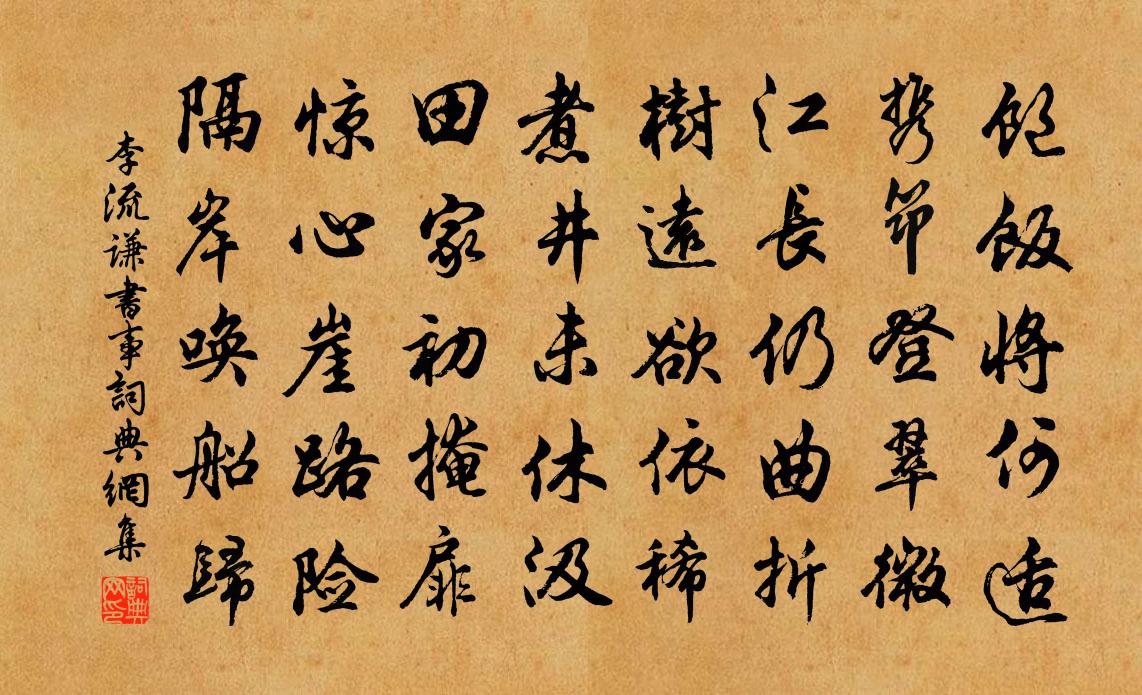 飽飯將何适
携筇登翠微
江長仍曲折
樹遠欲依稀
煮井未休汲
田家初掩扉
惊心崖路险
隔岸唤船歸
李流谦書事詞典網集
詞典网印